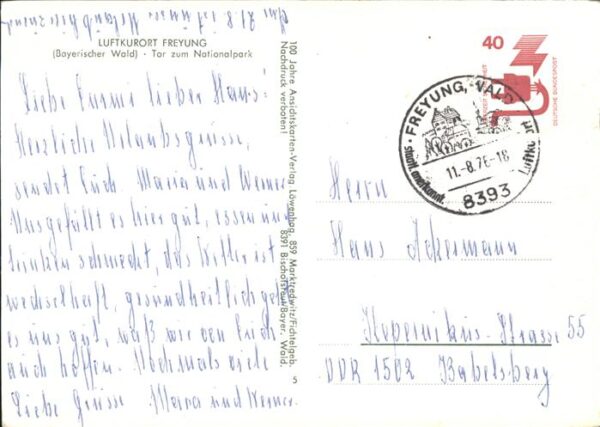 Am 21.8 ist unser Urlaub hier zu ende
LUFTKURORT FREYUNG
(Bayerischer Wald) · Tor zum Nationalpark
Liebe Emmi lieber Hans!
Herzliche Urlaubsgrüsse,
sendet Euch Maria und Werner
Uns gefällt es hier gut, essen und
trinken schmeckt, das Wetter ist
wechselhaft, gesundheitlich geht
es uns gut, was wir von Euch
auch hoffen. Nochmals viele
Liebe Grüsse Maria und Werner.
100 Jahre Ansichtskarten-Verlag Löwenhag, 859 Marktredwitz/Fichtelgeb.
Nachdruck verboten! 8391 Bischofsreut/Bayer. Wald.
5
40
DEUTSCHE BUNDESPOST
FREYUNG, WALD
staatl. anerkannt. Luftkurort
11.-8.76-18
8393
Herrn
Hans Ackermann
Kopernikus-Strasse 55
DDR 1502 Babelsberg